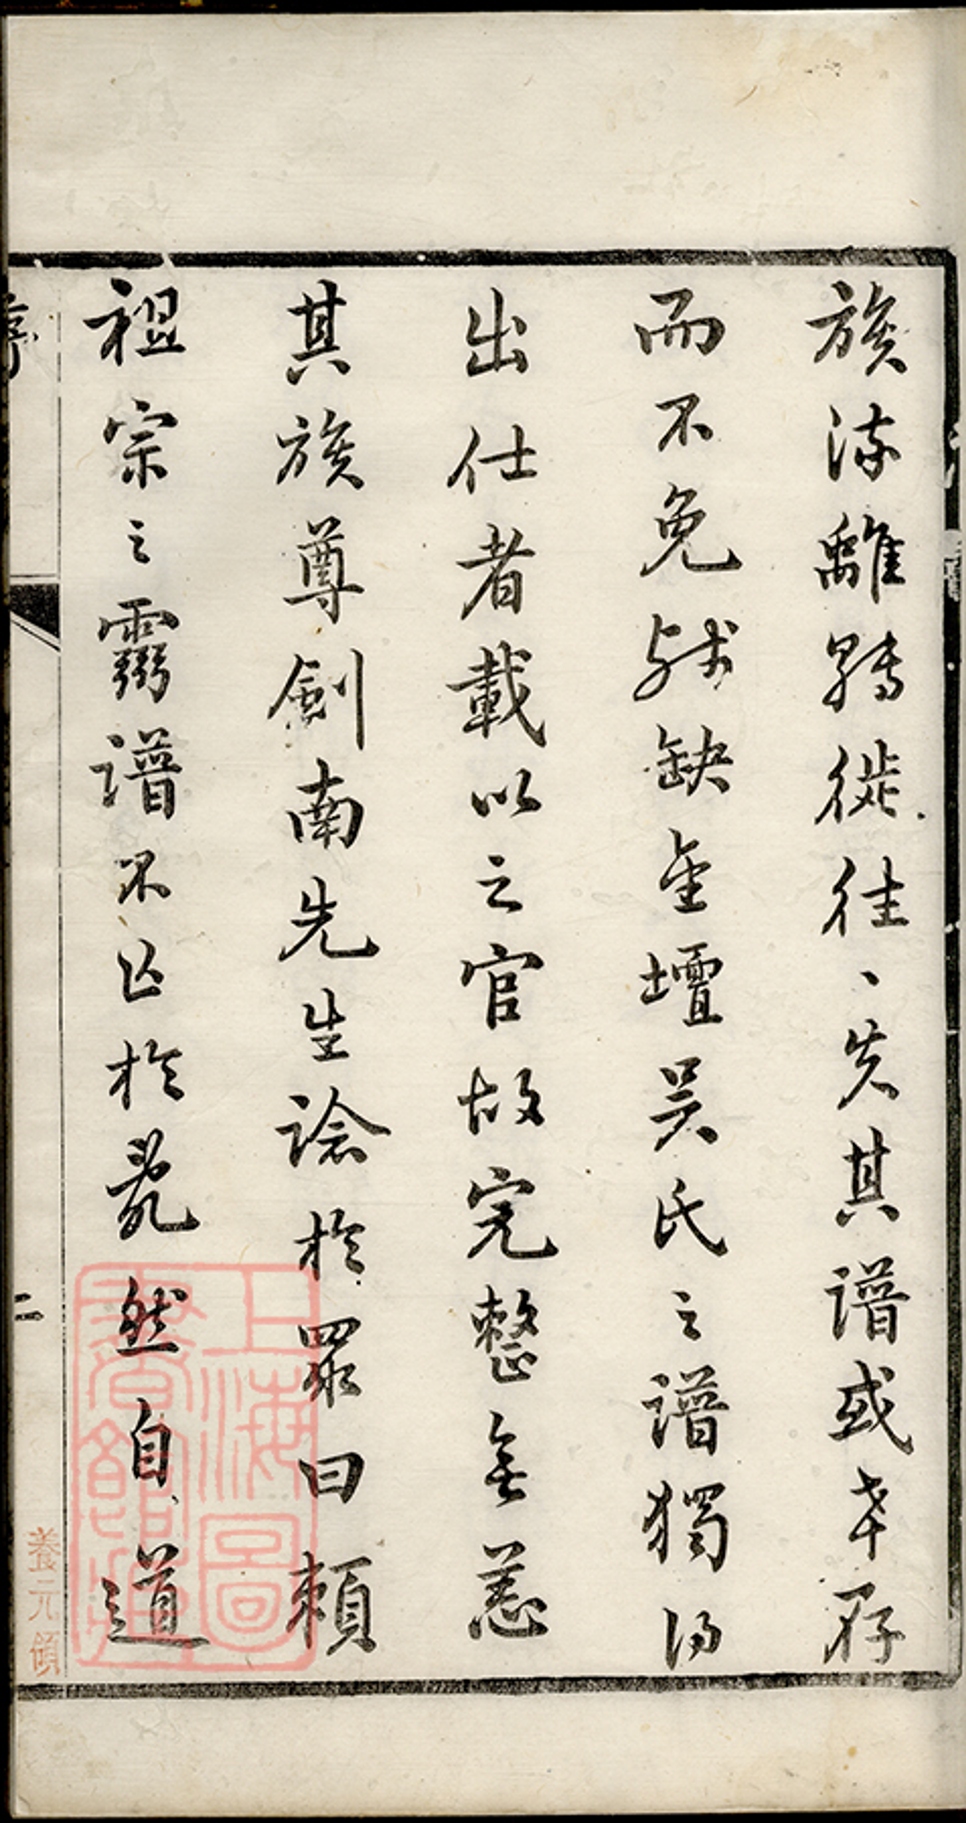 族流離轉徙往〻失其譜或幸存
而不免殘缺金壇吳氏之譜獨得
出仕者載以之官故完整無恙
其族尊劍南先生諗於眾曰賴
祖宗之靈譜不亡於亂然自道
序
二
養元領
上海圖書館藏